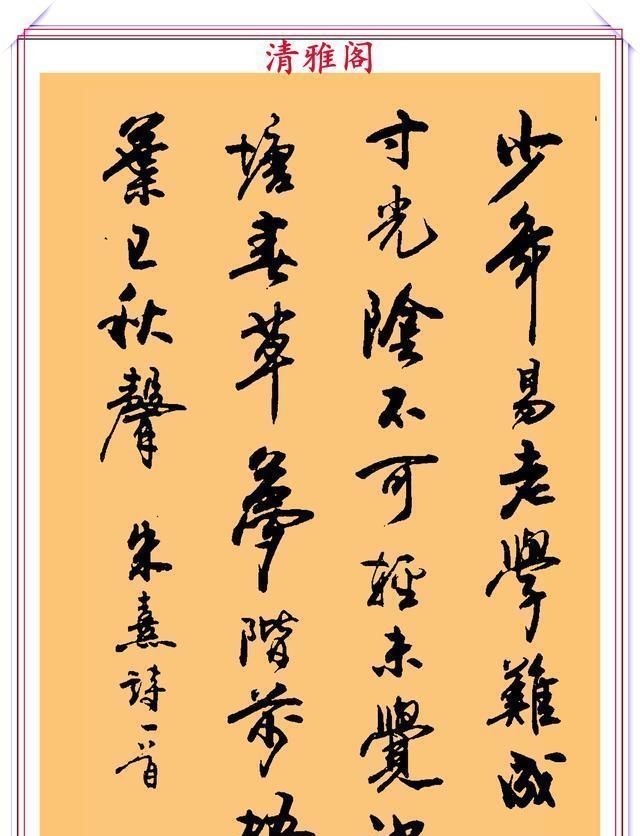 清雅阁
少年易老學難成
寸光陰不可輕未覺
塘春草夢階前
葉已秋聲
朱熹詩一首